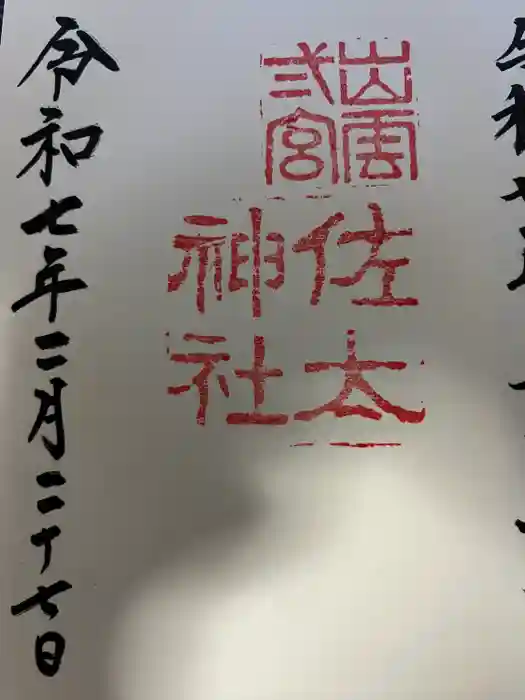 出雲
弍宮
佐太
神社
令和七年二月二十七日